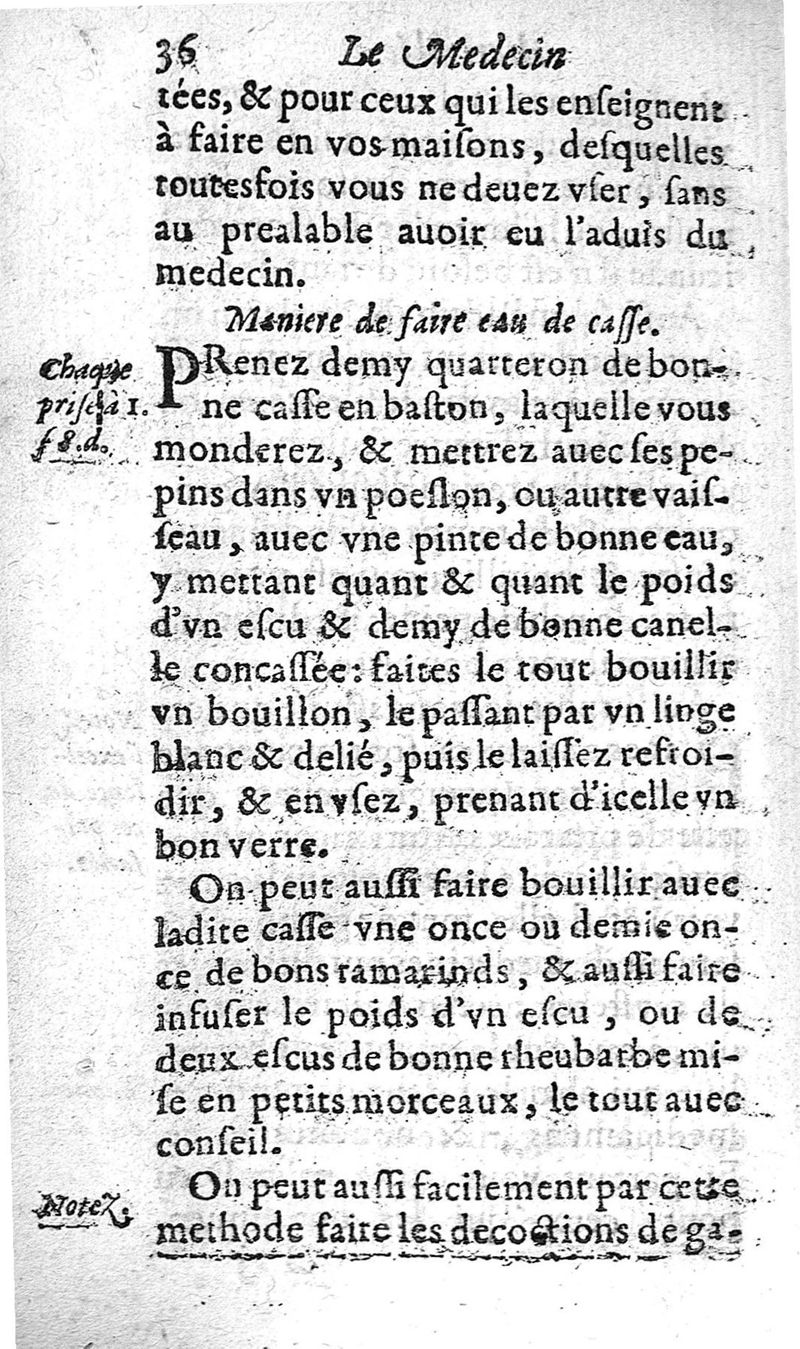 36 Le Medecin
tées, & pour ceux qui les enſeignent
à faire en vos maiſons, deſquelles
toutesfois vous ne deuez vſer, ſans
au prealable auoir eu l'aduis du
medecin.
Maniere de faire eau de caſſe.
Chaque
priſe à 1.
ſ 8.d.
PRenez demy quarteron de bon-
ne caſſe en baſton, laquelle vous
monderez, & mettrez auec ſes pe-
pins dans vn poeſlon, ou autre vaiſ-
ſeau, auec vne pinte de bonne eau,
y mettant quant & quant le poids
d'vn eſcu & demy de bonne canel-
le concaſſée: faites le tout bouillir
vn bouillon, le paſſant par vn linge
blanc & delié, puis le laiſſez refroi-
dir, & en vſez, prenant d'icelle vn
bon verre.
On peut auſſi faire bouillir auec
ladite caſſe vne once ou demie on-
ce de bons tamarinds, & auſſi faire
infuſer le poids d'vn eſcu, ou de
deux eſcus de bonne rheubarbe mi-
ſe en petits morceaux, le tout auec
conſeil.
Notez.
On peut auſſi facilement par cette
methode faire les decoctions de ga-